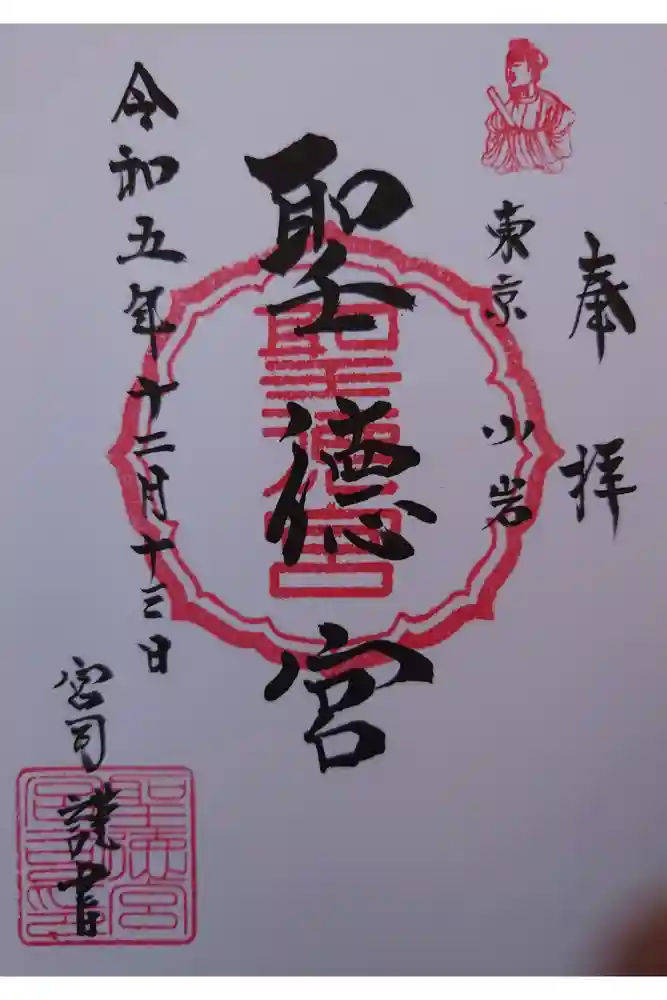 奉拝
東京 小岩
聖德宮
聖徳宮
令和五年十二月十三日
宮司 謹書
聖徳宮